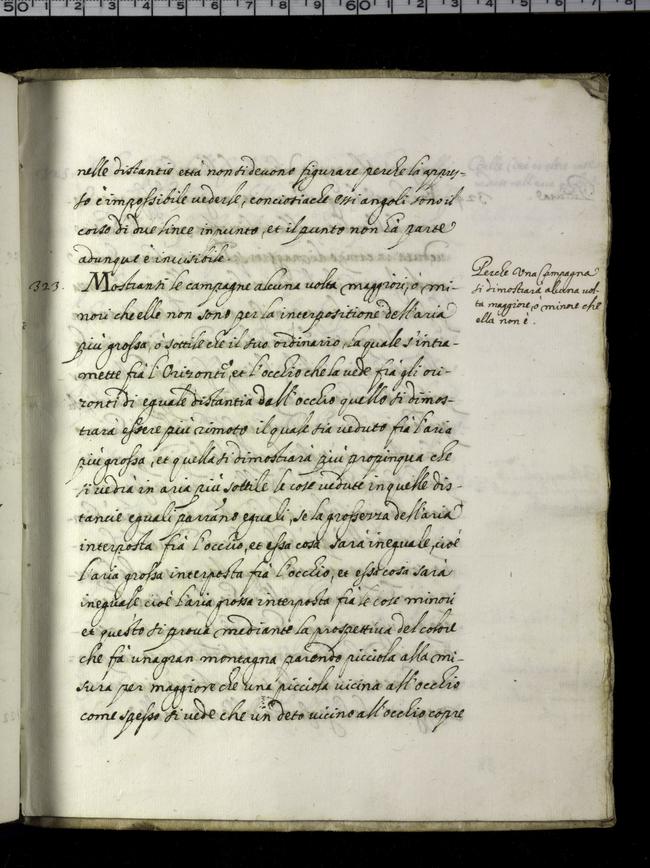 nelle distantie età non si devono figurare perche la appres-
so è impossibile vederle, conciosiache essi angoli sono il
corso di due linee in punto, et il punto non hà parte
adunque è invisibile.
323. Mostransi le campagne alcuna volta maggiori, ò mi-
nori che elle non sono per la interpositione dell'aria
più grossa, ò sottile che il suo ordinario, la quale s'intra-
mette frà l'Orizonti, et l'occhio che la vede frà gli ori-
zonti di eguale distantia dall'occhio quello si dimos-
trarà essere più rimoto il quale sia veduto frà l'aria
più grossa, et quella si dimostrarà più propinqua che
si vedrà in aria più sottile le cose vedute in quelle dis-
tancie eguali parrano eguali, se la grossezza dell'aria
interposta frà l'occhio, et essa cosa sarà ineguale, cioè
l'aria grossa interposta frà l'occhio, et essa cosa sarà
ineguale cioè l'aria grossa interposta frà le cose minori
et questo si prova mediante la prospettiva del colore
che fà una gran montagna parendo picciola alla mi-
sura per maggiore che una picciola vicina all'occhio
come spesso si vede che un deto vicino all'occhio copre
Perche Una Campagna
si dimostrarà alcuna vol-
ta maggiore, ò minore che
ella non è.